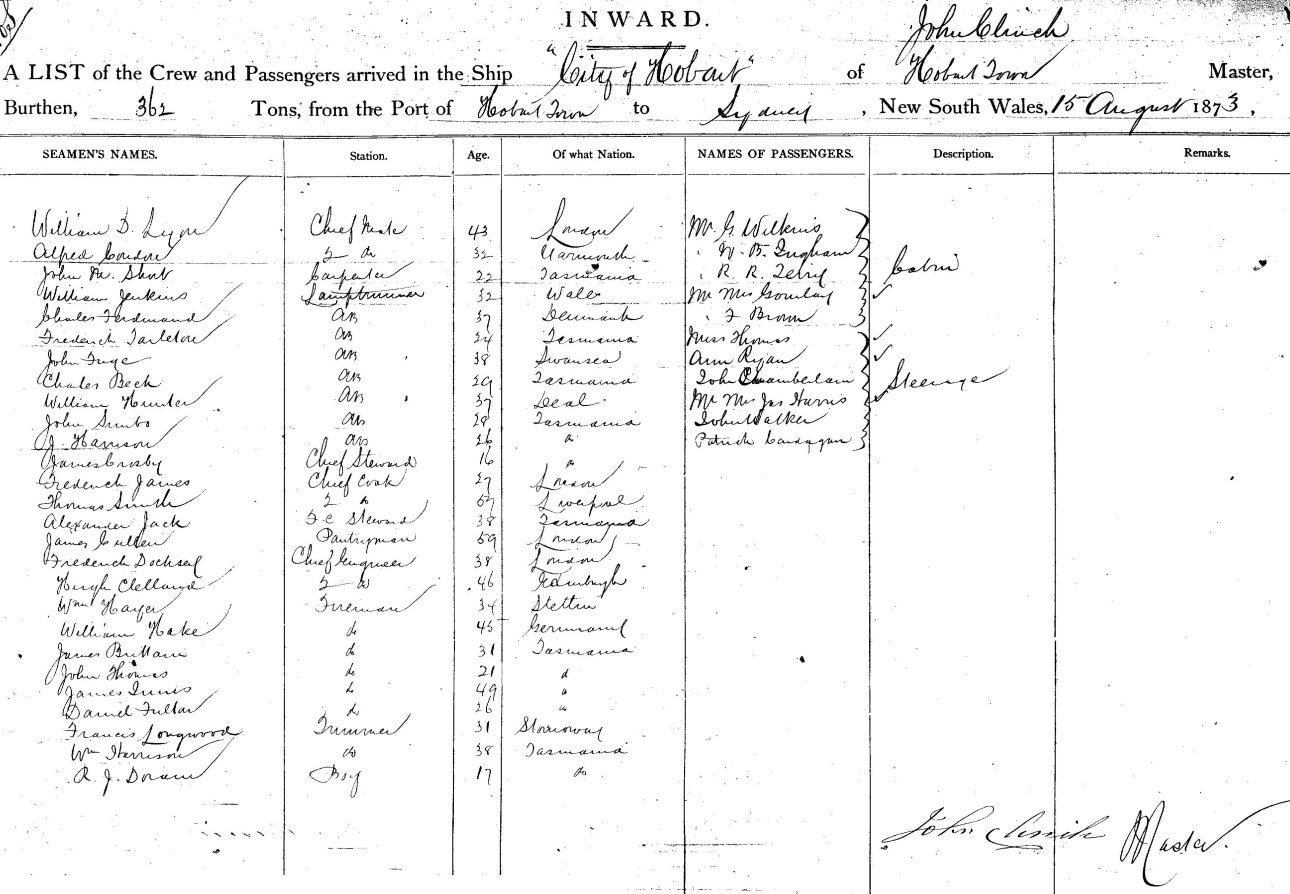 INWARD.
John Clinch
A LIST of the Crew and Passengers arrived in the Ship "City of Hobart" of Hobart Town Master,
Burthen, 362 Tons, from the Port of Hobart Town to Sydney, New South Wales, 15 August 1873,
SEAMEN'S NAMES. Station. Age. Of what Nation. NAMES OF PASSENGERS. Description. Remarks.
William D. Lyon Chief Mate 43 London Mr G Wilkins
Alfred Condon 2 do 32 Yarmouth " W. B. Ingham Cabin
John M. Short Carpenter 22 Tasmania " R. R. Terry
William Jenkins Lamptrimmer 32 Wales Mr Mrs Gourlay
Charles Ferdinand AB 37 Denmark " F Brown
Frederick Tarleton AB 24 Tasmania Miss Thomas
John Fuge AB 38 Swansea Ann Ryan
Charles Beck AB 29 Tasmania John Chamberlain Steerage
William Hunter AB 37 Deal Mr Mrs Jas Harris
John AB 28 Tasmania John Walker
J. Harrison AB 26 " Patrick
James Crosby Chief Steward 16 "
Frederick James Chief Cook 27 London
Thomas Smith 2 do Liverpool
Alexander Jack F.C Steward 38 Tasmania
James Cullen Pantryman 59 London
Frederick Chief Engineer 38 London
Hugh Clelland 2 do 46 Edinburgh
Wm Hayer Fireman 34 Stettin
William Hake do 45 Germany
James Brittain do 31 Tasmania
John Thomas do 21 do
James Innis do 49 "
Daniel Fulton do 26 "
Francis Longwood Trimmer 31 Stornoway
Wm Harrison do 38 Tasmania
R. J. Doran Boy 17 do
John Clinch Master.